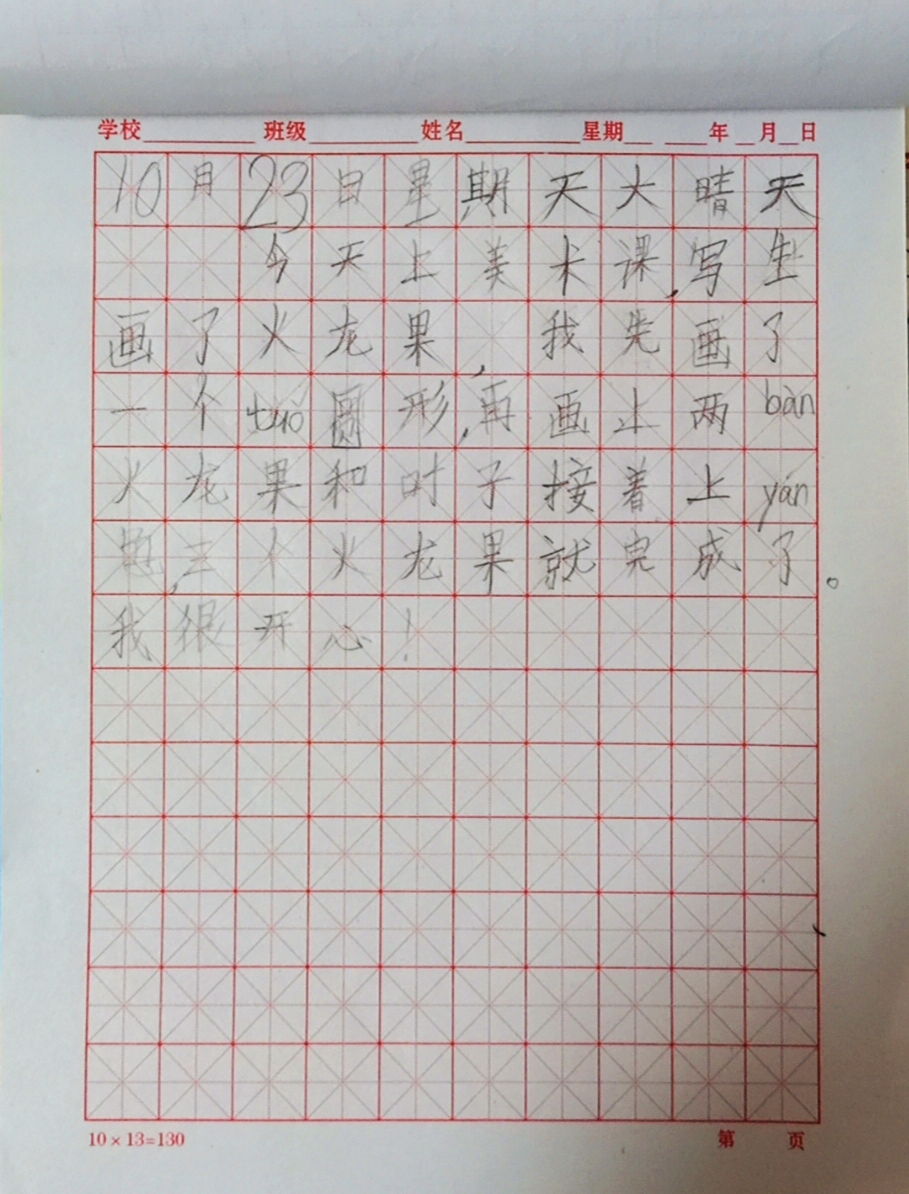 学校 班级 姓名 星期 年 月 日
10月23日星期天大晴天
今天上美术课,写生
画了火龙果,我先画了
一个tuǒ圆形,再画上两bàn
火龙果和叶子接着上yán
色,三个火龙果就完成了。
我很开心!
10×13=130 第 页